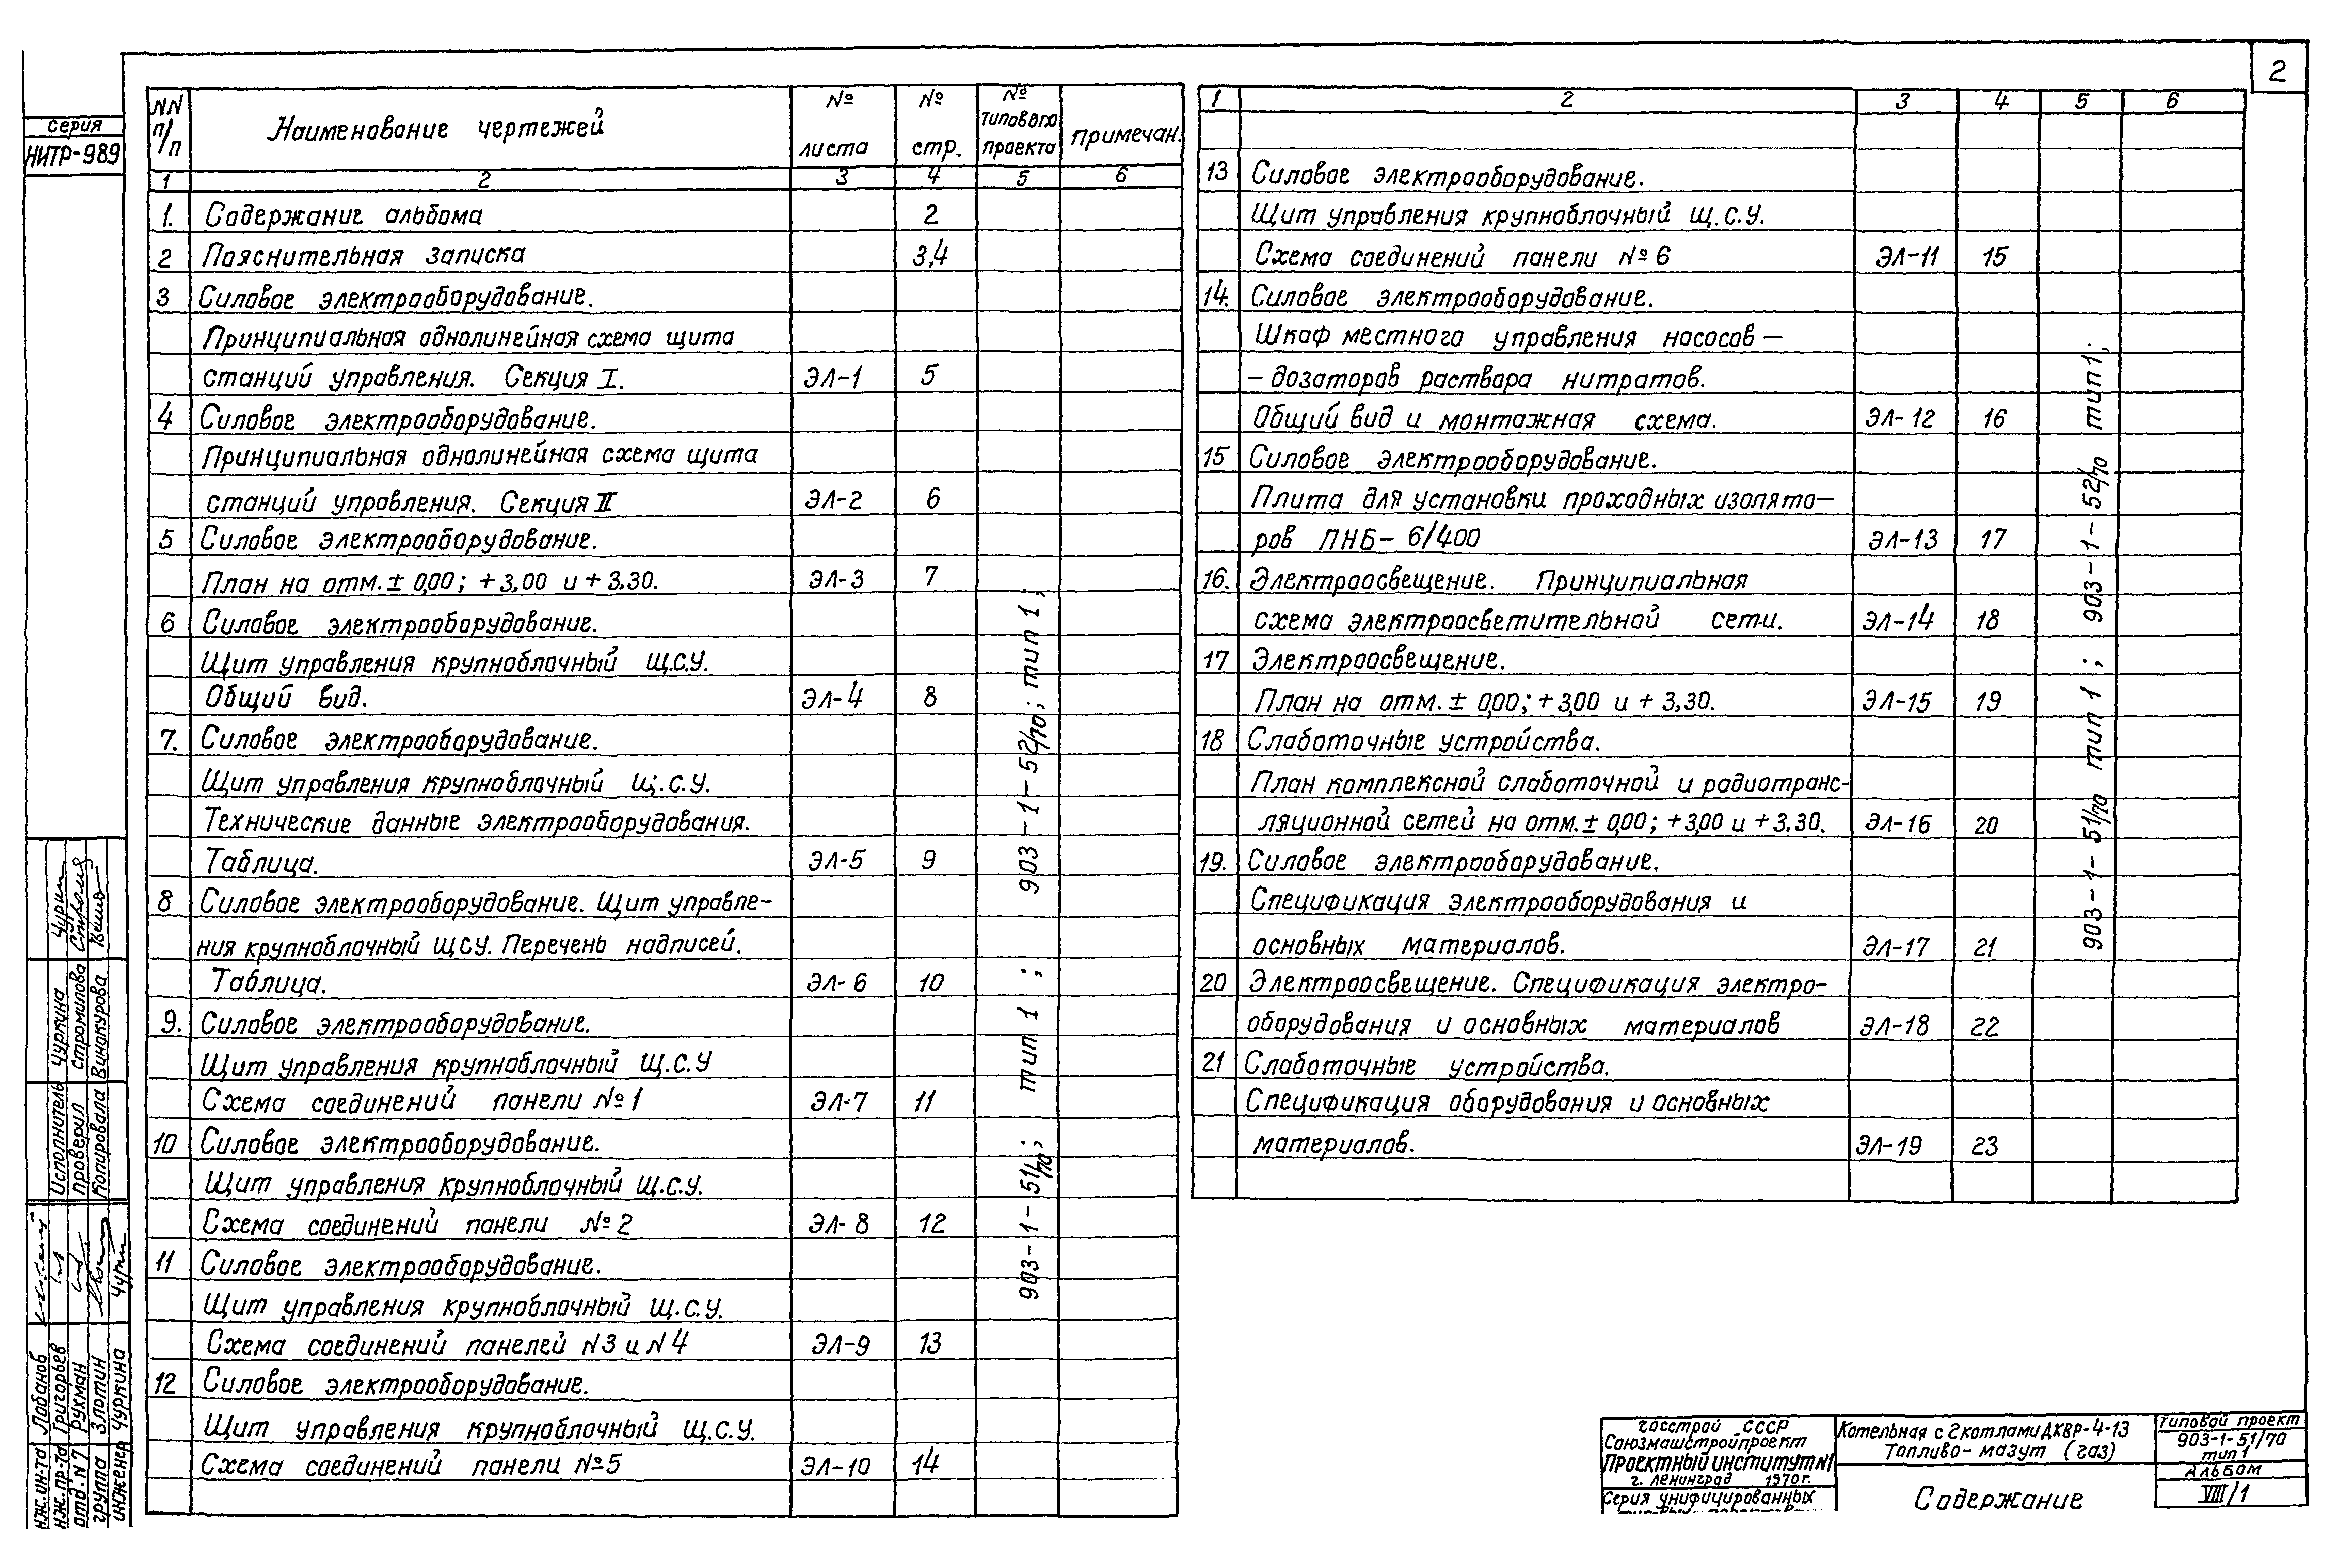 2
серия
НИТР-989
NN п/п Наименование чертежей № листа № стр. № типового проекта примечан.
1 2 3 4 5 6
1. Содержание альбома 2
2 Пояснительная записка 3,4
3 Силовое электрооборудование.
Принципиальная однолинейная схема щита
станций управления. Секция I. ЭЛ-1 5
4 Силовое электрооборудование.
Принципиальная однолинейная схема щита
станций управления. Секция II ЭЛ-2 6
5 Силовое электрооборудование.
План на отм. ± 0,00; +3,00 и +3,30. ЭЛ-3 7
6 Силовое электрооборудование.
Щит управления крупноблочный Щ.С.У.
Общий вид. ЭЛ-4 8
7. Силовое электрооборудование.
Щит управления крупноблочный Щ.С.У.
Технические данные электрооборудования.
Таблица. ЭЛ-5 9
8 Силовое электрооборудование. Щит управле-
ния крупноблочный ЩСУ. Перечень надписей.
Таблица. ЭЛ-6 10
9. Силовое электрооборудование.
Щит управления крупноблочный Щ.С.У
Схема соединений панели №1 ЭЛ-7 11
10 Силовое электрооборудование.
Щит управления крупноблочный Щ.С.У.
Схема соединений панели №2 ЭЛ-8 12
11 Силовое электрооборудование.
Щит управления крупноблочный Щ.С.У.
Схема соединений панелей N3 и N4 ЭЛ-9 13
12 Силовое электрооборудование.
Щит управления крупноблочный Щ.С.У.
Схема соединений панели №5 ЭЛ-10 14
903-1-51/70; тип 1; 903-1-52/70; тип 1;
1 2 3 4 5 6
13 Силовое электрооборудование.
Щит управления крупноблочный Щ.С.У.
Схема соединений панели №6 ЭЛ-11 15
14. Силовое электрооборудование.
Шкаф местного управления насосов —
— дозаторов раствора нитратов.
Общий вид и монтажная схема. ЭЛ-12 16
15 Силовое электрооборудование.
Плита для установки проходных изолято-
ров ПНБ-6/400 ЭЛ-13 17
16. Электроосвещение. Принципиальная
схема электроосветительной сети. ЭЛ-14 18
17 Электроосвещение.
План на отм. ± 0,00; +3,00 и +3,30. ЭЛ-15 19
18 Слаботочные устройства.
План комплексной слаботочной и радиотранс-
ляционной сетей на отм. ± 0,00; +3,00 и +3.30. ЭЛ-16 20
19. Силовое электрооборудование.
Спецификация электрооборудования и
основных материалов. ЭЛ-17 21
20 Электроосвещение. Спецификация электро-
оборудования и основных материалов ЭЛ-18 22
21 Слаботочные устройства.
Спецификация оборудования и основных
материалов. ЭЛ-19 23
903-1-51/70 тип 1; 903-1-52/70 тип 1;
Исполнитель Чуркина
Проверил Стромилова
Копировала Винакурова
нж. ин-та Лобанов
нж. пр-та Григорьев
отд. N7 Рухман
группа Злотин
инженер Чуркина
госстрой СССР
Союзмашстройпроект
Проектный институт N1
г. Ленинград 1970г.
Серия унифицированных
Котельная с 2 котлами ДКВР-4-13
Топливо-мазут (газ)
Содержание
типовой проект
903-1-51/70
тип 1
Альбом
VIII/1